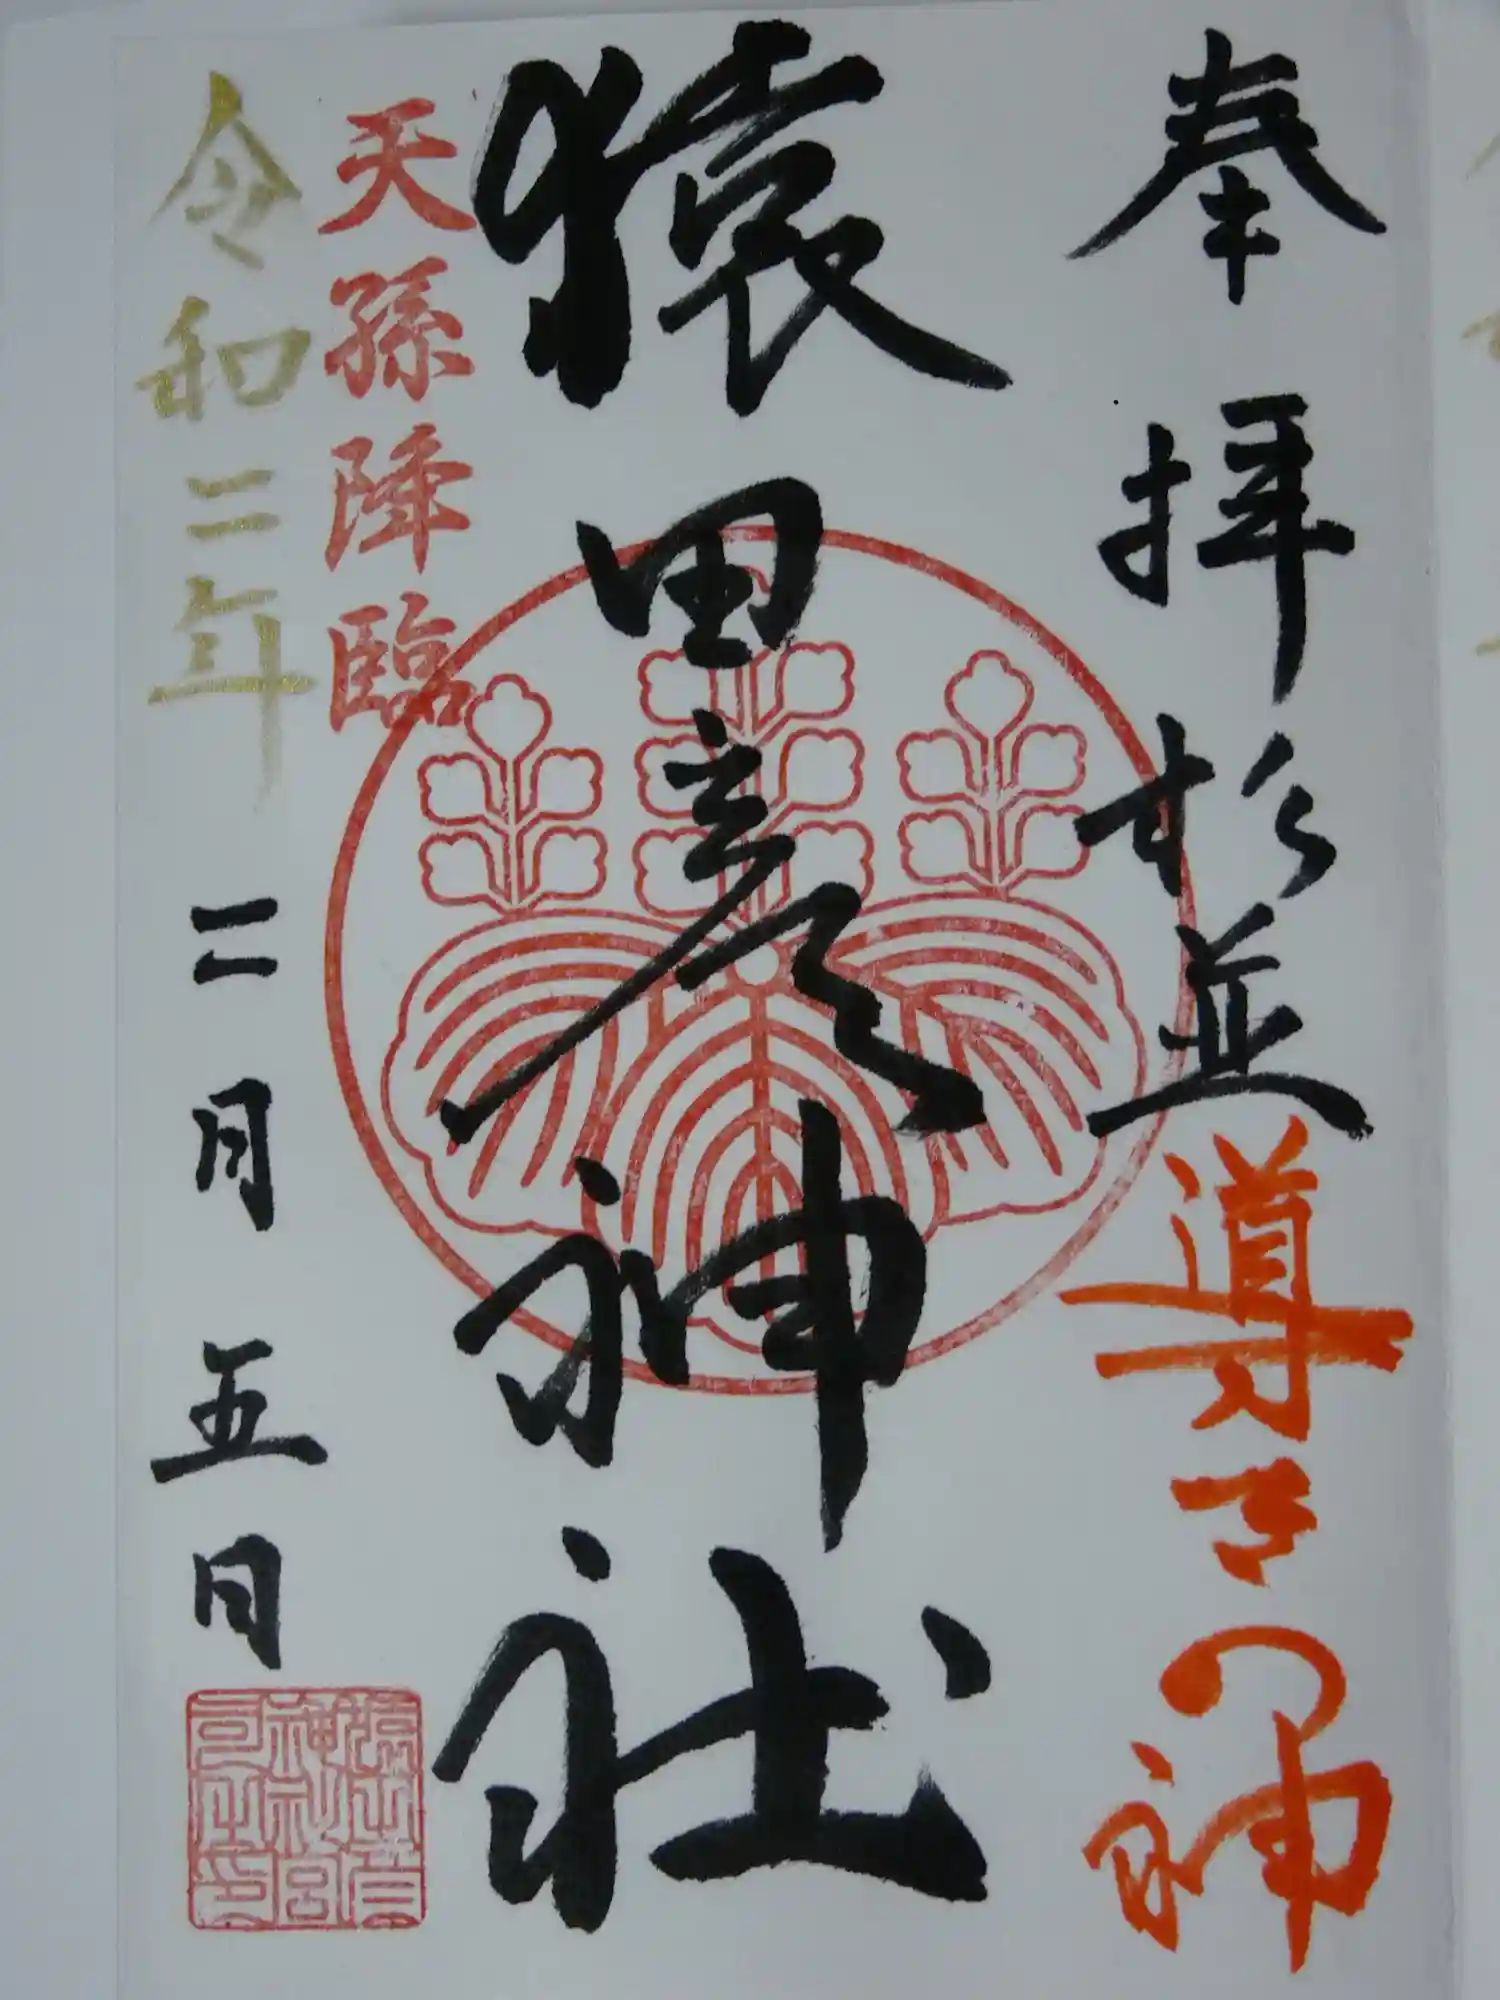 奉拝 杉並 導きの神
猿田彦神社
天孫降臨
令和二年 二月五日